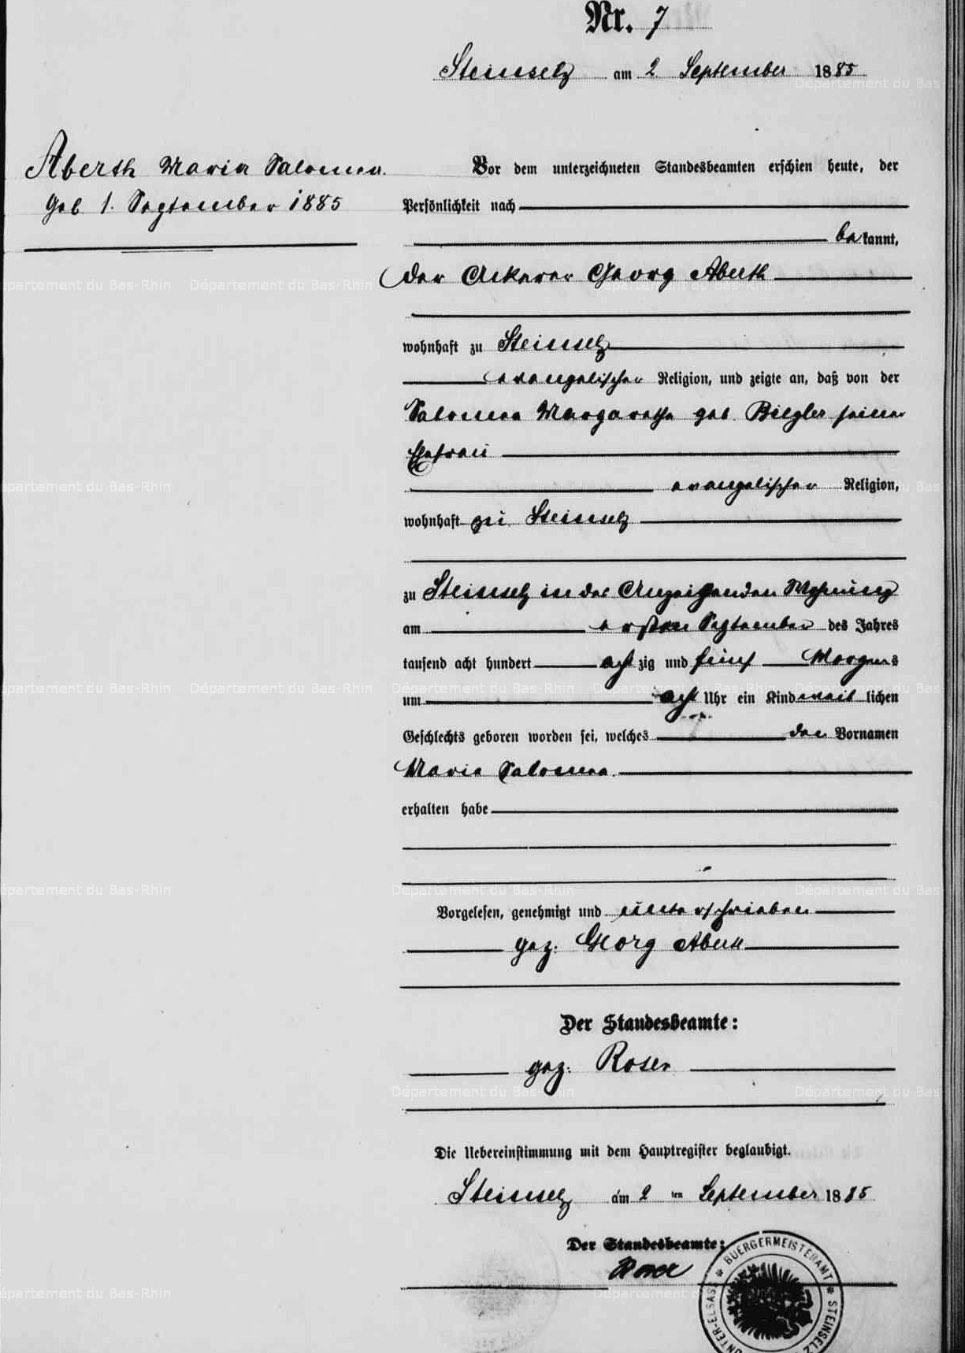 Nr. 7
Steinselz am 2. September 1885
Aberth Maria Salomea.
geb 1. September 1885
Vor dem unterzeichneten Standesbeamten erschien heute, der
Persönlichkeit nach
bekannt,
der Ackerer Georg Aberth
wohnhaft zu Steinselz
evangelischer Religion, und zeigte an, daß von der
Salomea Margaretha geb. Biegler seiner
Ehefrau
evangelischer Religion,
wohnhaft zu Steinselz
zu Steinselz in der Anzeigenden Wohnung
am ersten September des Jahres
tausend acht hundert achtzig und fünf Morgens
um acht Uhr ein Kind weiblichen
Geschlechts geboren worden sei, welches den Vornamen
Maria Salomea.
erhalten habe
Vorgelesen, genehmigt und unterschrieben
gez. Georg Aberth
Der Standesbeamte:
gez. Roser
Die Uebereinstimmung mit dem Hauptregister beglaubigt.
Steinselz am 2 ten September 1885
Der Standesbeamte:
Roser
BUERGERMEISTERAMT * STEINSELZ
UNTER-ELSASS *
Département du Bas-Rhin